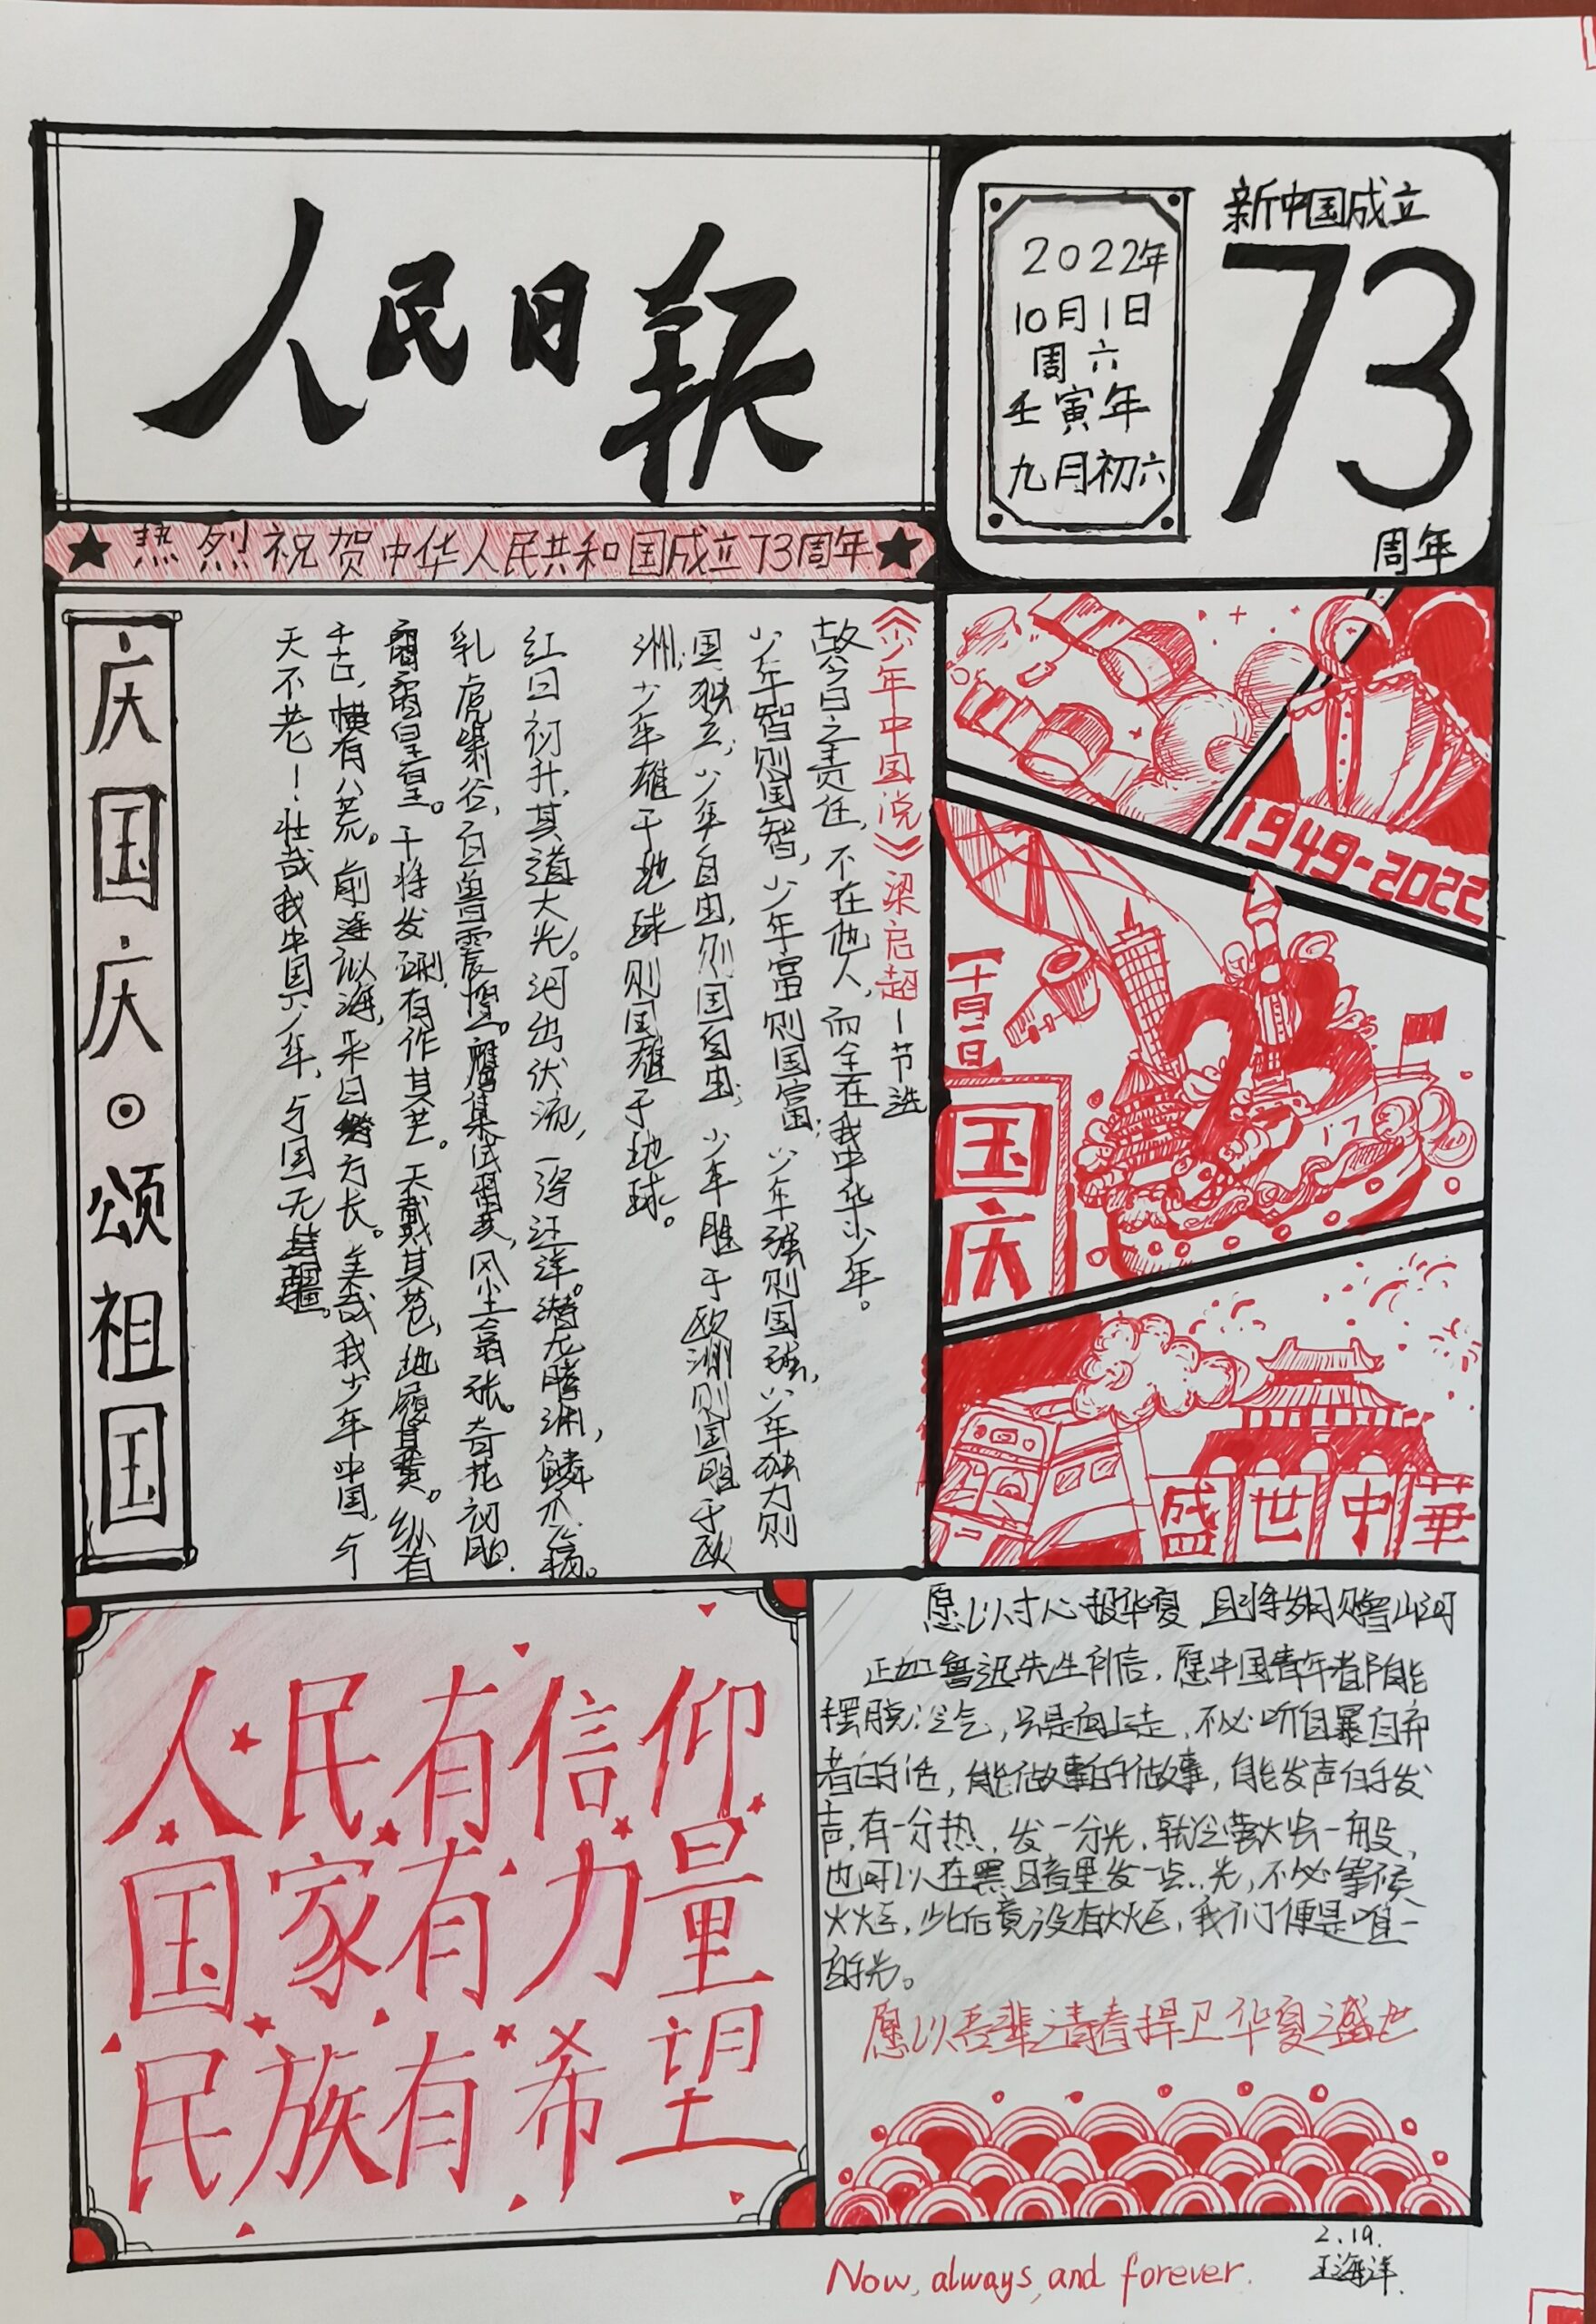 人民日报
2022年
10月1日
周六
壬寅年
九月初六
新中国成立
73
周年
★热烈祝贺中华人民共和国成立73周年★
庆国庆⊙颂祖国
《少年中国说》梁启超-节选
故今日之责任,不在他人,而全在我中华少年。
少年智则国智,少年富则国富;少年强则国强,少年独力则
国独立;少年自由,则国自由;少年胜于欧洲则国胜于欧
洲;少年雄于地球则国雄于地球。
红日初升,其道大光。河出伏流,一泻汪洋。潜龙腾渊,鳞爪飞扬。
乳虎啸谷,百兽震惶。鹰隼试翼,风尘翕张。奇花初胎,
矞矞皇皇。干将发硎,有作其芒。天戴其苍,地履其黄。纵有
千古,横有八荒。前途似海,来日方长。美哉我少年中国,与
天不老!壮哉我中国少年,与国无疆。
1949-2022
【十月一日】
国庆
23
盛世中華
人民有信仰
国家有力量
民族有希望
愿以寸心报华夏 且将岁月赠山河
正如鲁迅先生所信,愿中国青年都能
摆脱冷气,只是向上走,不必听自暴自弃
者的话,能做事的做事,能发声的发
声,有一分热,发一分光,就令萤火虫一般,
也可以在黑暗里发一点光,不必等候
火炬,此后竟没有火炬,我们便是唯一
的光。
愿以吾辈之青春捍卫华夏之盛世
2.19.
王海洋.
Now, always, and forever.